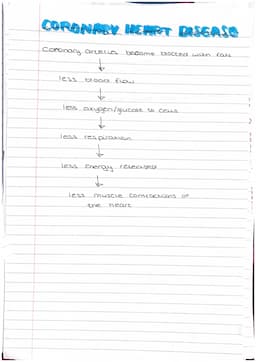 CORONARY HEART DISEASE
Coronary arteries become blocked with fats
less blood flow
less oxygen/glucose to cells
less respiration
less energy released
less muscle contractions of
the heart